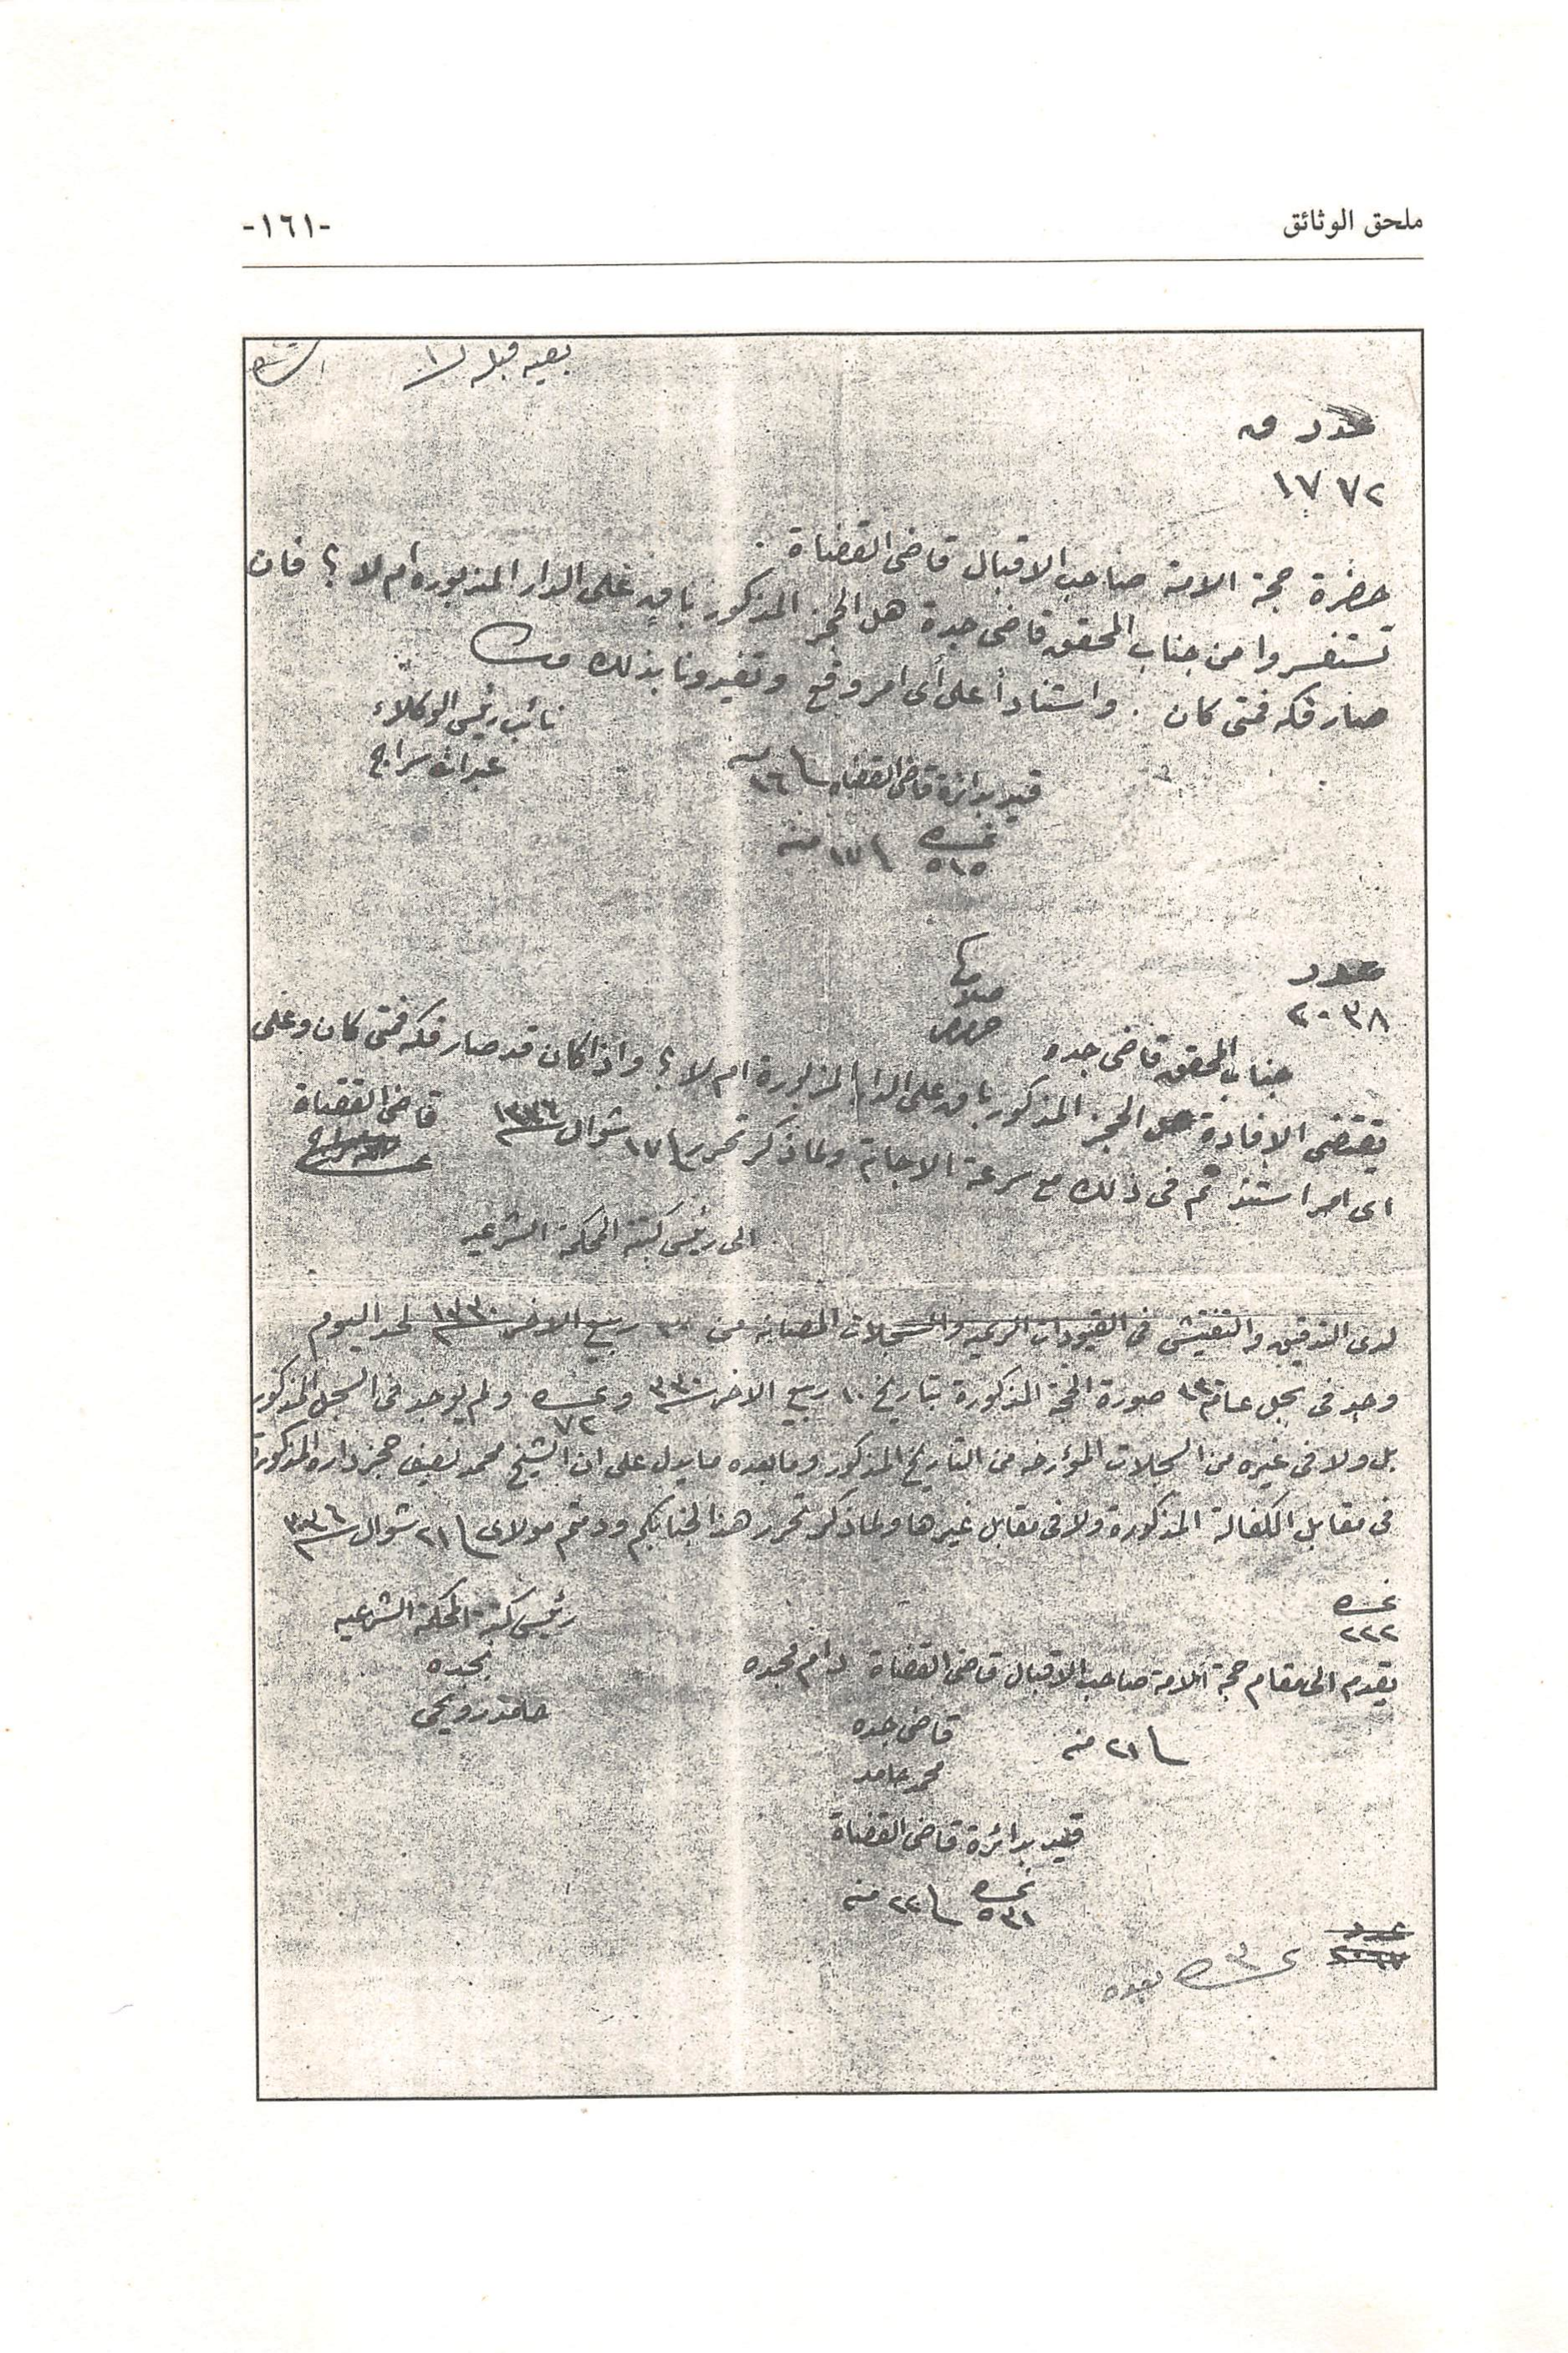 ملحق الوثائق
-١٦١-
بعيه قبله
عدد
١٧٧٢
حضرة حجة الامة صاحب الاقبال قاضى القضاة
تستفسروا من جناب المحقق قاضى جدة هل الحجز المذكور باق على الدار المذبورة ام لا ؟ فان
صار فكه فمتى كان . واستناداً على أى امر وقع وتفيدونا بذلك
نائب رئيس الوكلاء
عبدالله سراج
قيد بدائرة قاضى القضاه ١٦
نمره ٥١٥ ١٧ منه
عدد
٢٠٣٨
جناب المحقق قاضى جده
يقتضى الافادة هل الحجز المذكور باق على الدار المزبورة ام لا ؟ واذا كان قد صار فكه فمتى كان وعلى
اى امر استندتم فى ذلك مع سرعة الاجابة ولما ذكر تحرر ١٧ شوال ١٣٣٦
قاضى القضاة
الى رئيس كتبة المحكمة الشرعيه
لدى التدقيق والتفتيش فى القيودات الرسميه والسجلات المصانه من ربيع الاخر ١٣٣٠ لحد اليوم
وجد فى سجل صورة الحجة المذكورة بتاريخ ١٠ ربيع الاخر ٣٣٠ ونمره ٧٢ ولم يوجد فى السجل المذكور
بل ولا فى غيره من السجلات المؤرخه من التاريخ المذكور وما بعده ما يدل على ان الشيخ محمد نصيف حجز داره المذكورة
فى مقابل الكفالة المذكورة ولا فى مقابل غيرها ولما ذكر تحرر هذا لجنابكم ودمتم مولاى ٢١ شوال ٣٣٦
رئيس كتبة المحكمة الشرعيه
بجده
نمره
٢٢٢
يقدم الى مقام حجة الامة صاحب الاقبال قاضى القضاة دام مجده
٢١ منه
قاضى جده
محمد حامد
قيد بدائرة قاضى القضاة
نمره ٥٣١ ٢٢ منه
عدد
نمره ٣ بعده